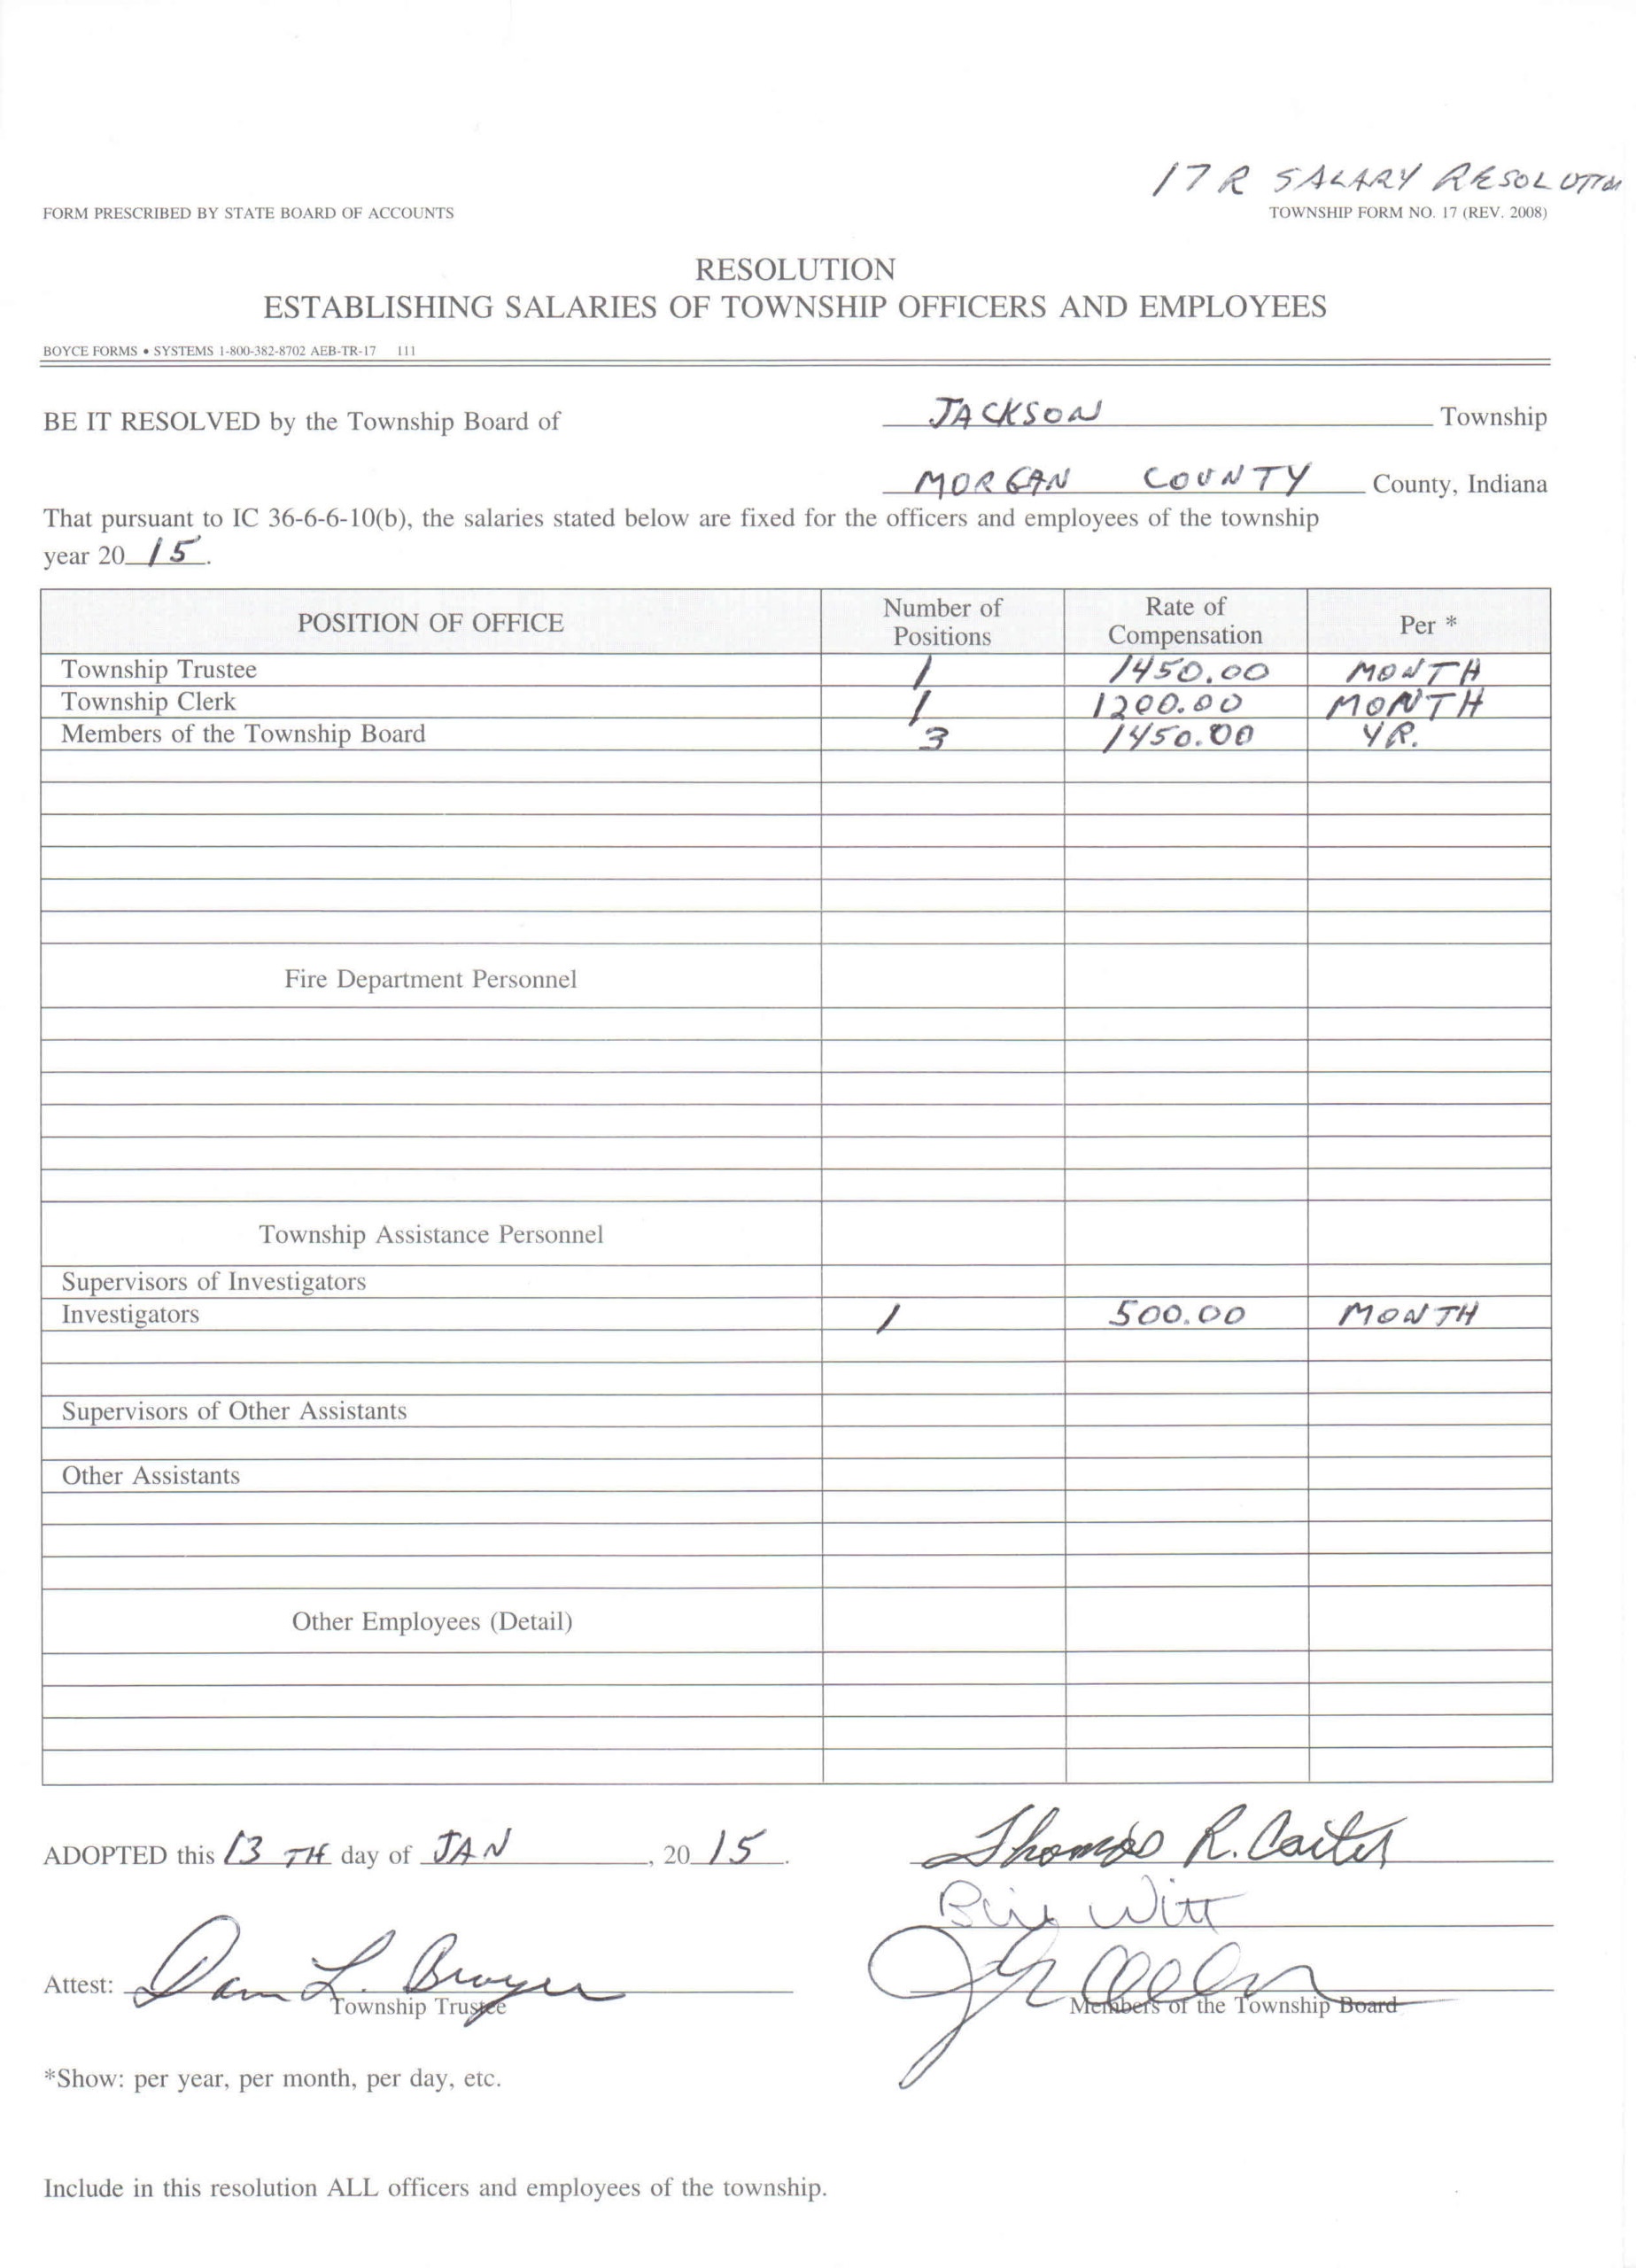 17 R SALARY RESOLUTION
FORM PRESCRIBED BY STATE BOARD OF ACCOUNTS
TOWNSHIP FORM NO. 17 (REV. 2008)
RESOLUTION
ESTABLISHING SALARIES OF TOWNSHIP OFFICERS AND EMPLOYEES
BOYCE FORMS • SYSTEMS 1-800-382-8702 AEB-TR-17 111
BE IT RESOLVED by the Township Board of JACKSON Township
MORGAN COUNTY County, Indiana
That pursuant to IC 36-6-6-10(b), the salaries stated below are fixed for the officers and employees of the township
year 20 15.
POSITION OF OFFICE Number of Positions Rate of Compensation Per *
Township Trustee 1 1450.00 MONTH
Township Clerk 1 1200.00 MONTH
Members of the Township Board 3 1450.00 YR.
Fire Department Personnel
Township Assistance Personnel
Supervisors of Investigators
Investigators 1 500.00 MONTH
Supervisors of Other Assistants
Other Assistants
Other Employees (Detail)
ADOPTED this 13 TH day of JAN, 20 15. Thomas R. Carter
Witt
Attest: Dan L.
Township Trustee
Members of the Township Board
*Show: per year, per month, per day, etc.
Include in this resolution ALL officers and employees of the township.